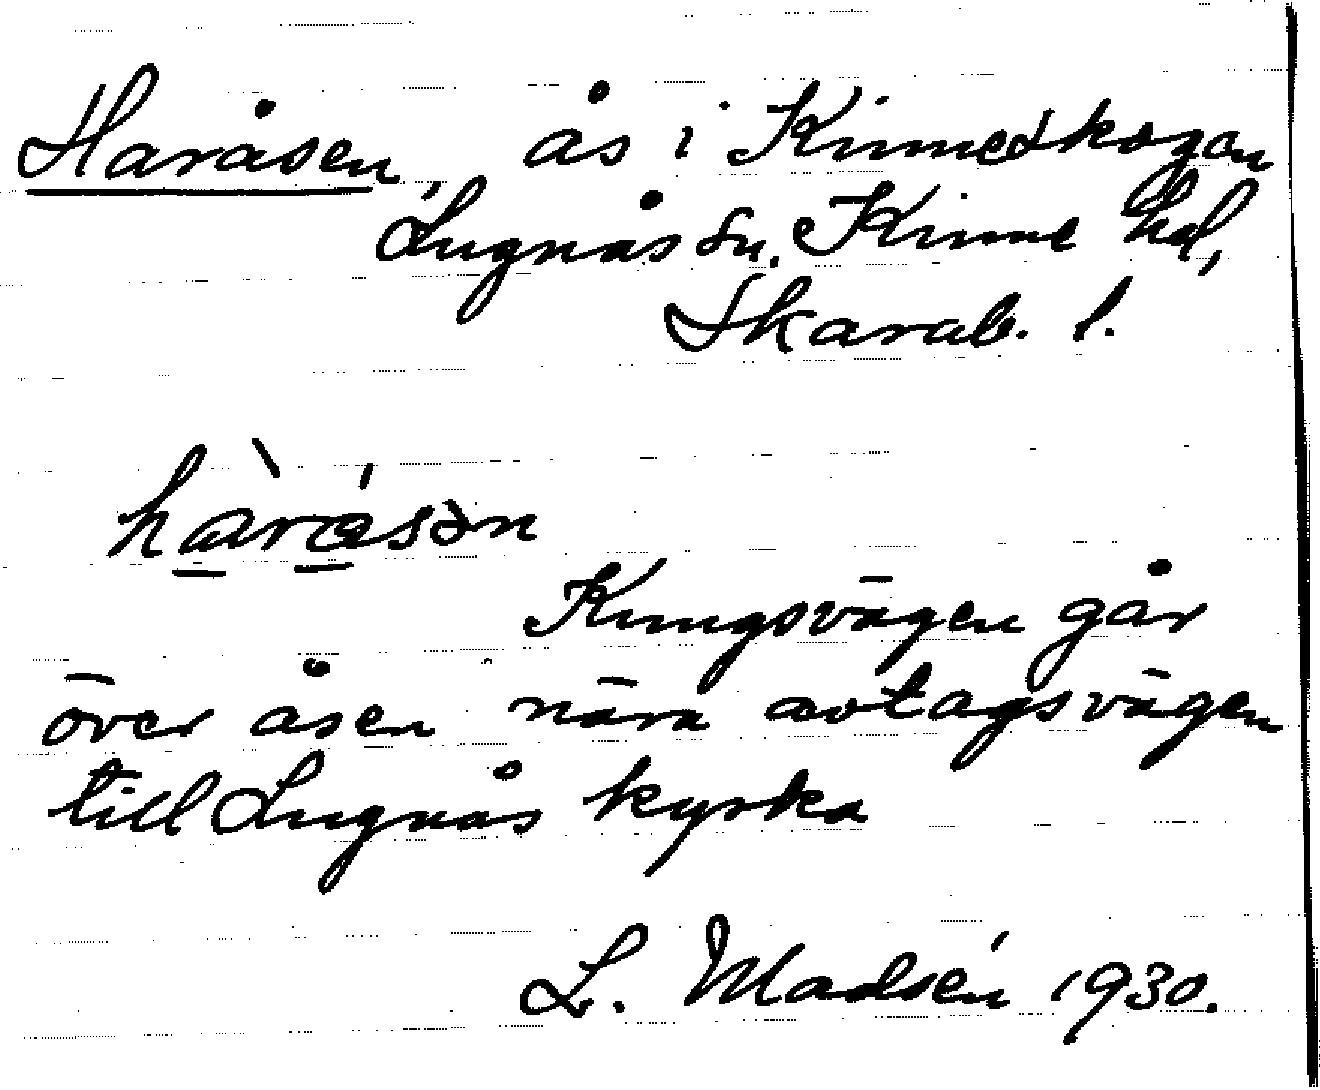 Haråsen, ås i Kinneskogen
Lugnås sn. Kinne hd,
Skarab. l.
hàråsən
Kungsvägen går
över åsen nära avtagsvägen
till Lugnås kyrka
L. Madsén 1930.